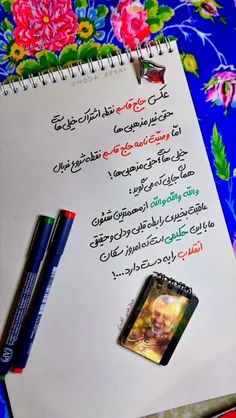 @HODA_AFRAZ
عکس حاج قاسم نقطه اشتراک خیلی هاست
حتی غیر مذهبی ها
اما وصیت نامه حاج قاسم نقطه شروع غربال
خیلی هاست حتی مذهبی ها!
همان جایی که می گوید:
والله والله والله از مهمترین شئون
عاقبت بخیری رابطه قلبی و دلی و حقیقی
ما با این حکیمی است که امروز سکان
انقلاب را به دست دارد...!